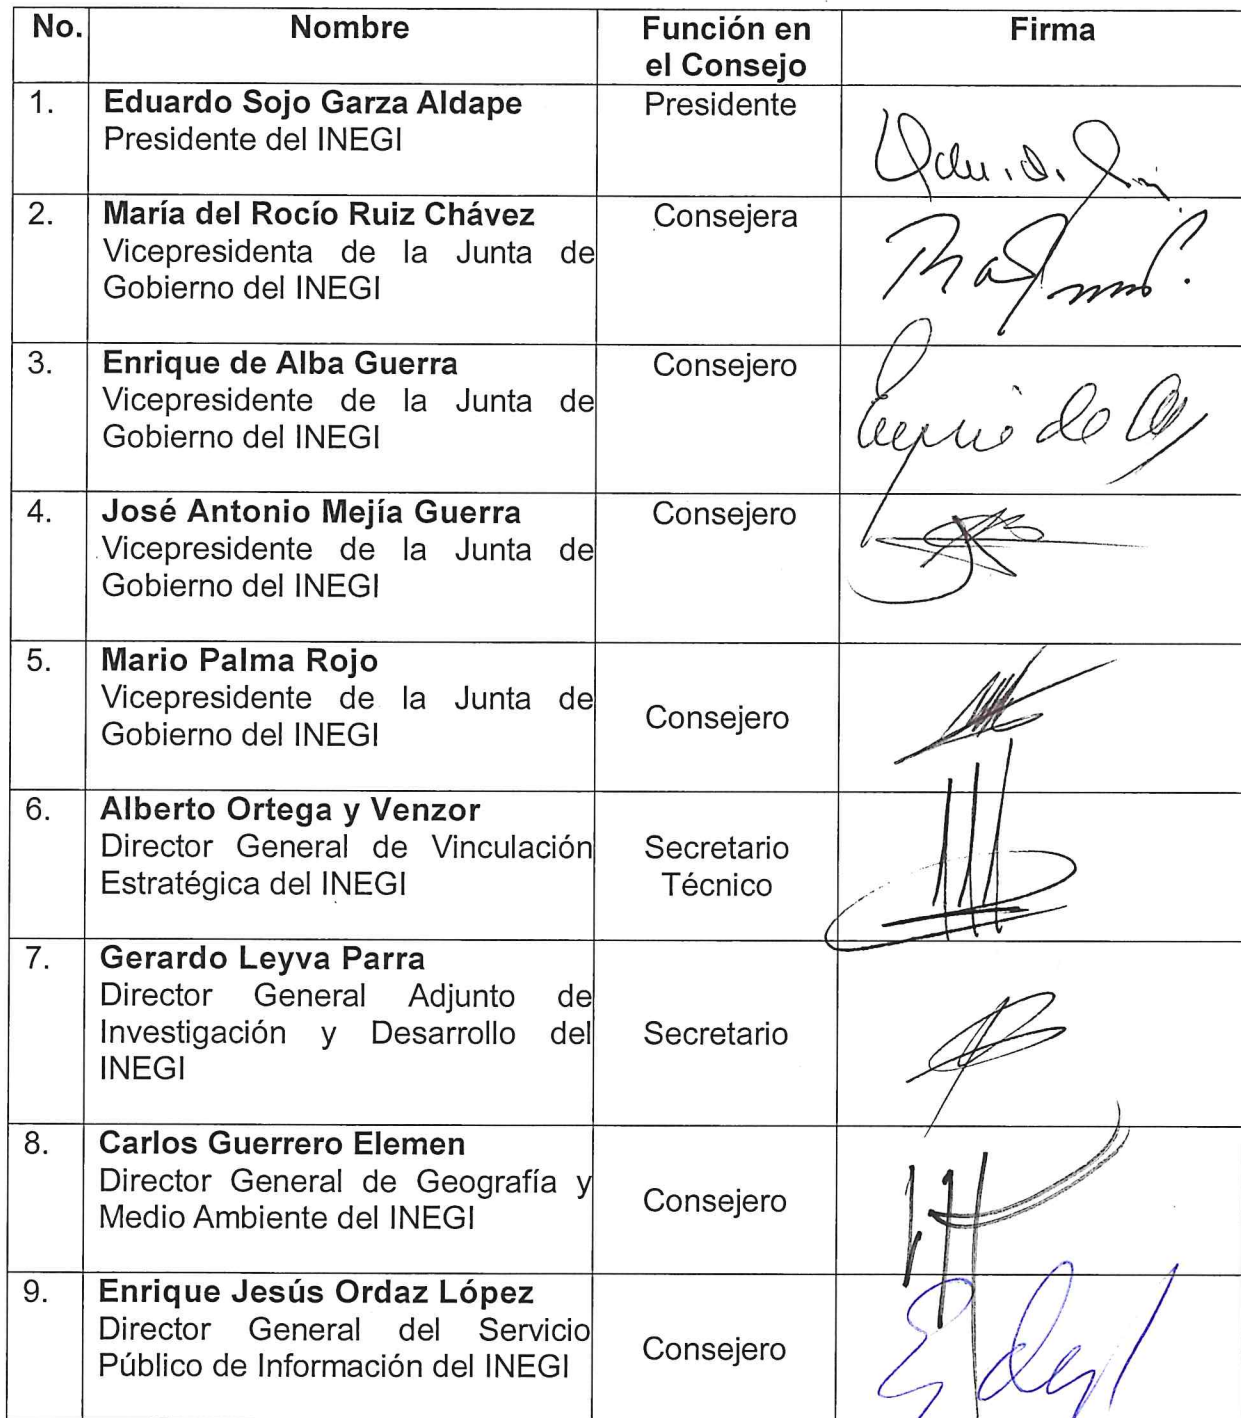 No. Nombre Función en el Consejo Firma
1. Eduardo Sojo Garza Aldape Presidente
Presidente del INEGI
2. María del Rocío Ruiz Chávez Consejera
Vicepresidenta de la Junta de
Gobierno del INEGI
3. Enrique de Alba Guerra Consejero
Vicepresidente de la Junta de
Gobierno del INEGI
4. José Antonio Mejía Guerra Consejero
Vicepresidente de la Junta de
Gobierno del INEGI
5. Mario Palma Rojo
Vicepresidente de la Junta de
Gobierno del INEGI Consejero
6. Alberto Ortega y Venzor
Director General de Vinculación Secretario
Estratégica del INEGI Técnico
7. Gerardo Leyva Parra
Director General Adjunto de
Investigación y Desarrollo del Secretario
INEGI
8. Carlos Guerrero Elemen
Director General de Geografía y
Medio Ambiente del INEGI Consejero
9. Enrique Jesús Ordaz López
Director General del Servicio
Público de Información del INEGI Consejero